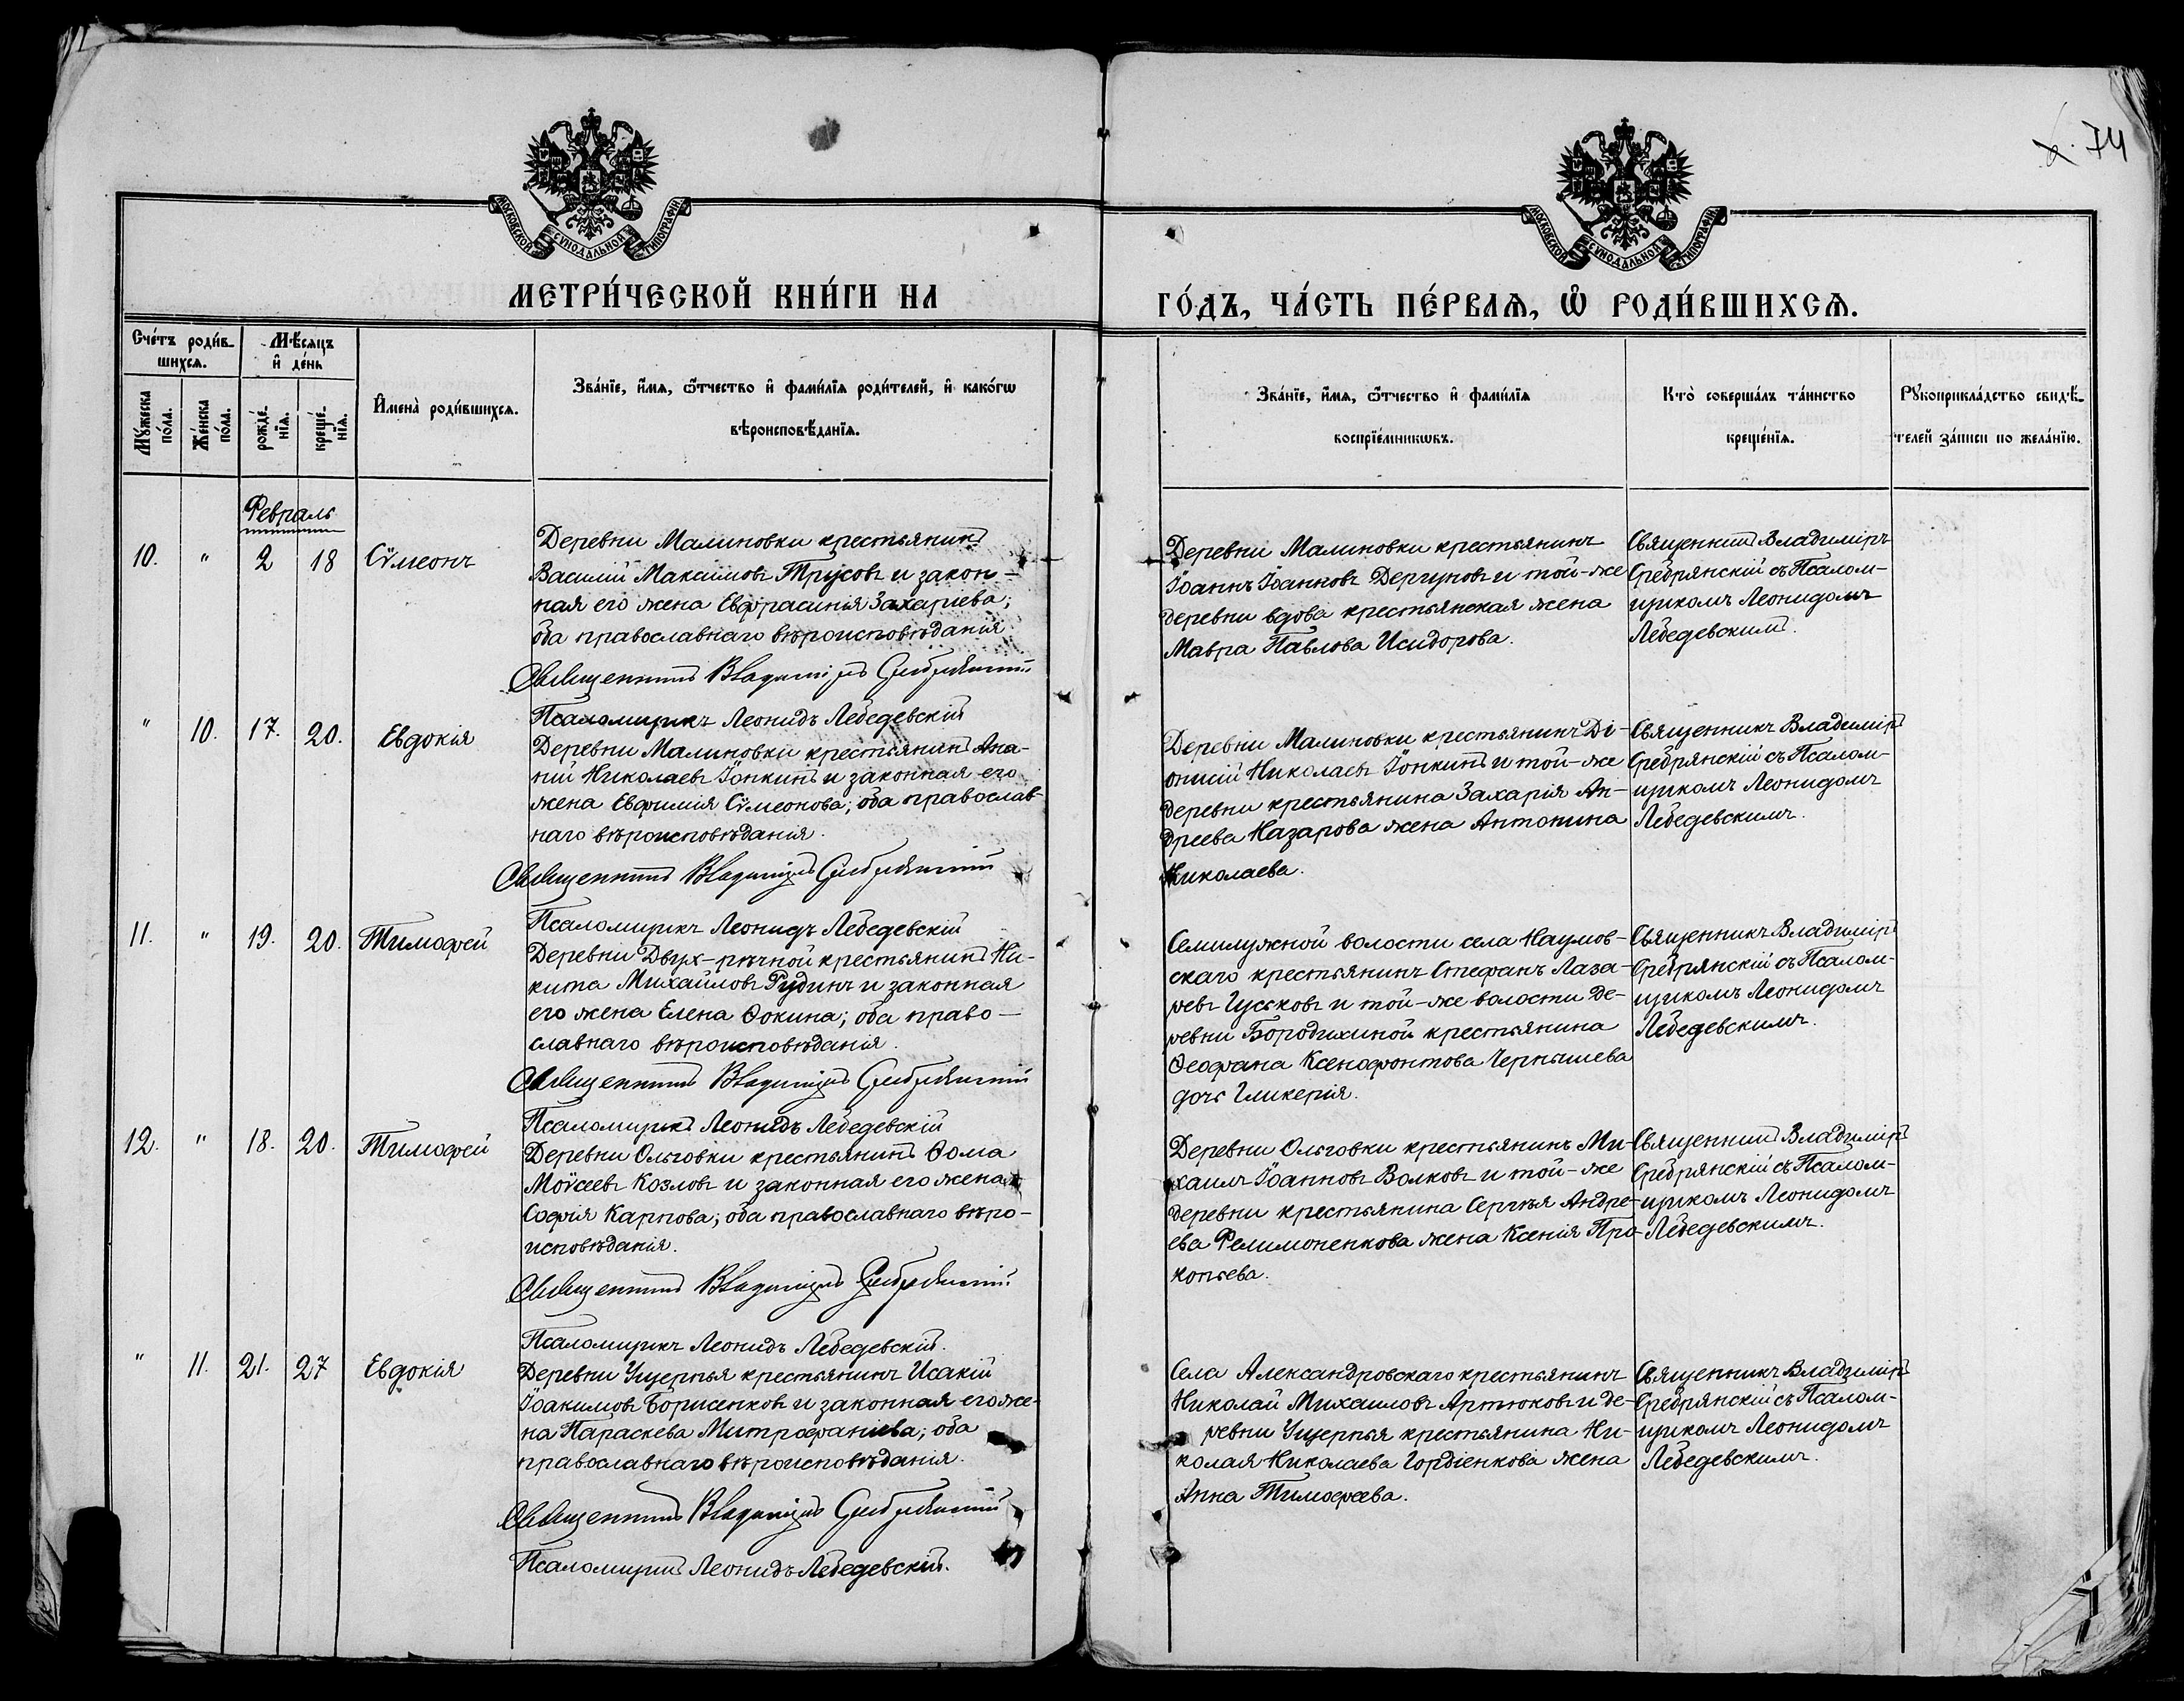 74
МОСКОВСКОЙ СѴНОДАЛЬНОЙ ТИПОГРАФІИ
МОСКОВСКОЙ СѴНОДАЛЬНОЙ ТИПОГРАФІИ
МЕТРИ́ЧЕСКОЙ КНИ́ГИ НА
ГО́ДЪ, ЧА́СТЬ ПЕ́РВАѦ, Ѡ҆ РОДИ́ВШИХСѦ.
Сче́тъ роди́в-
шихсѧ.
Мѣ́сяцъ
и҆ де́нь
Мꙋ́жеска
по́ла.
Же́нска
по́ла.
рожде́-
нїѧ.
креще́-
нїѧ.
И҆мена̀ роди́вшихсѧ.
Зва́нїе, и҆́мѧ, ѻ҆́тчество и҆ фами́лїѧ роди́телей, и҆ како́гѡ
вѣроисповѣ́данїѧ.
Зва́нїе, и҆́мѧ, ѻ҆́тчество и҆ фами́лїѧ
воспрїе́мникѡвъ.
Кто̀ соверша́лъ та́инство
креще́нїѧ.
Рꙋкоприкла́дство свидѣ́-
телей за́писи по жела́нїю.
Февраль
10. " 2 18 Сѵмеонъ
Деревни Малиновки крестьянинъ
Василій Максимовъ Трусовъ и закон-
ная его жена Евфрасинія Захаріева;
оба православнаго вѣроисповѣданія
Священникъ Владиміръ Сребрянскій
Псаломщикъ Леонидъ Лебедевскій
Деревни Малиновки крестьянинъ
Іоаннъ Іоанновъ Дергуновъ и той-же
деревни вдова крестьянская жена
Мавра Павлова Исидорова.
Священникъ Владиміръ
Сребрянскій съ Псалом-
щикомъ Леонидомъ
Лебедевскимъ.
" 10. 17. 20. Евдокія
Деревни Малиновки крестьянинъ Ана-
ній Николаевъ Іонкинъ и законная его
жена Евфимія Сѵмеонова; оба православ-
наго вѣроисповѣданія.
Священникъ Владиміръ Сребрянскій
Псаломщикъ Леонидъ Лебедевскій
Деревни Малиновки крестьянинъ Ді-
онисій Николаевъ Іонкинъ и той-же
деревни крестьянина Захарія Ан-
дреева Назарова жена Антонина
Николаева.
Священникъ Владиміръ
Сребрянскій съ Псалом-
щикомъ Леонидомъ
Лебедевскимъ.
11. " 19. 20. Тимофей
Деревни Двух-рѣчной крестьянинъ Ни-
кита Михайловъ Рудинъ и законная
его жена Елена Ѳокина; оба право-
славнаго вѣроисповѣданія.
Священникъ Владиміръ Сребрянскій
Псаломщикъ Леонидъ Лебедевскій
Семилужной волости села Наумов-
скаго крестьянинъ Стефанъ Лаза-
ревъ Гуськовъ и той-же волости де-
ревни Бородихиной крестьянина
Ѳеофана Ксенофонтова Чернышева
дочь Гликерія.
Священникъ Владиміръ
Сребрянскій съ Псалом-
щикомъ Леонидомъ
Лебедевскимъ.
12. " 18. 20. Тимофей
Деревни Ольговки крестьянинъ Ѳома
Моѵсеевъ Козловъ и законная его жена
Софія Карпова; оба православнаго вѣро-
исповѣданія.
Священникъ Владиміръ Сребрянскій
Псаломщикъ Леонидъ Лебедевскій.
Деревни Ольговки крестьянинъ Ми-
хаилъ Іоанновъ Волковъ и той-же
деревни крестьянина Сергѣя Андре-
ева Фелимоненкова жена Ксенія Про-
копьева.
Священникъ Владиміръ
Сребрянскій съ Псалом-
щикомъ Леонидомъ
Лебедевскимъ.
" 11. 21. 27 Евдокія
Деревни Ущерпья крестьянинъ Исакій
Іоакимовъ Борисенковъ и законная его же-
на Параскева Митрофаніева; оба
православнаго вѣроисповѣданія.
Священникъ Владиміръ Сребрянскій
Псаломщикъ Леонидъ Лебедевскій.
Села Александровскаго крестьянинъ
Николай Михаиловъ Артюковъ и де-
ревни Ущерпья крестьянина Ни-
колая Николаева Гордіенкова жена
Анна Тимофеева.
Священникъ Владиміръ
Сребрянскій съ Псалом-
щикомъ Леонидомъ
Лебедевскимъ.